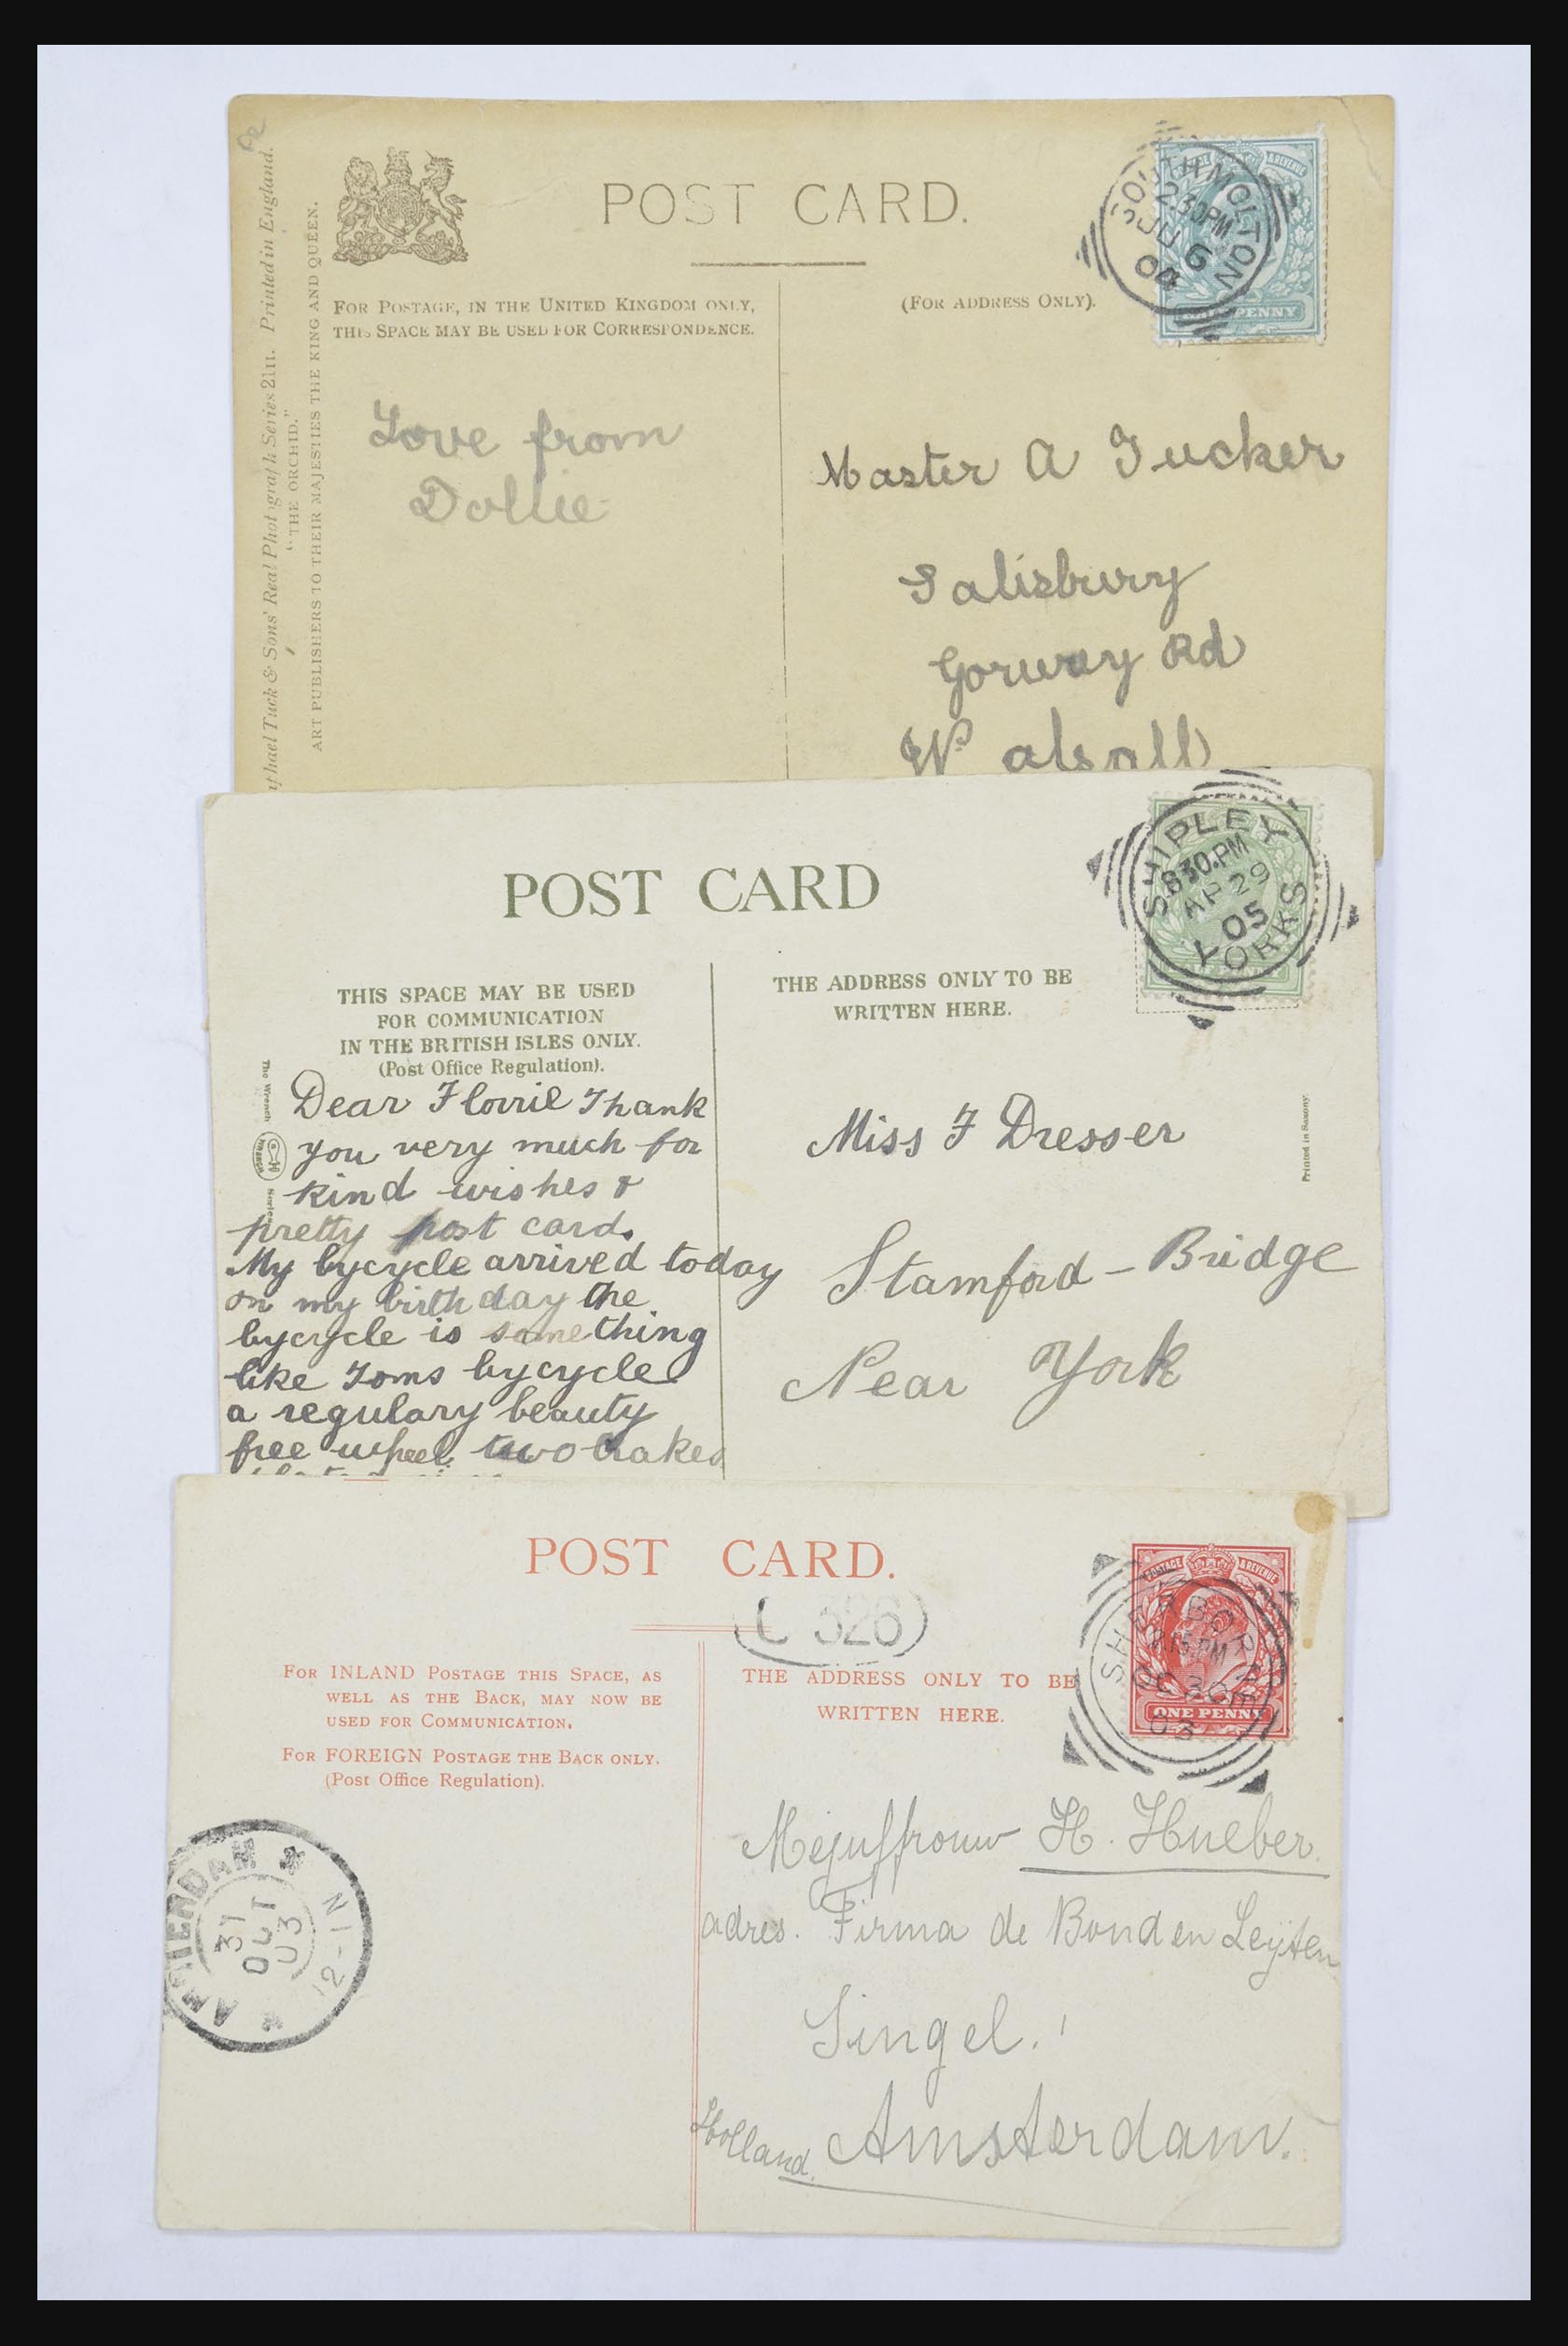 POST CARD.
FOR POSTAGE, IN THE UNITED KINGDOM ONLY,
THIS SPACE MAY BE USED FOR CORRESPONDENCE.
(FOR ADDRESS ONLY).
SOUTH MOLTON
2 30PM
JU 6
04
PENNY
Tuck & Sons' Real Photograph Series 2111. Printed in England.
"THE ORCHID."
ART PUBLISHERS TO THEIR MAJESTIES THE KING AND QUEEN.
Love from
Dollie
Master A Tucker
Salisbury
Gorway Rd
Walsall
POST CARD
SHIPLEY
8 30.PM
AP 29
05
YORKS
THIS SPACE MAY BE USED
FOR COMMUNICATION
IN THE BRITISH ISLES ONLY.
(Post Office Regulation).
THE ADDRESS ONLY TO BE
WRITTEN HERE.
The Wrench Series
Printed in Saxony
Dear Florrie Thank
you very much for
kind wishes &
pretty post card.
My bycycle arrived today
on my birthday the
bycycle is something
like Toms bycycle
a regulary beauty
free wheel two brakes
Miss F Dresser
Stamford - Bridge
Near York
POST CARD.
326
FOR INLAND POSTAGE THIS SPACE, AS
WELL AS THE BACK, MAY NOW BE
USED FOR COMMUNICATION.
FOR FOREIGN POSTAGE THE BACK ONLY.
(Post Office Regulation).
THE ADDRESS ONLY TO BE
WRITTEN HERE.
POSTAGE & REVENUE
ONE PENNY
OC 30
03
AMSTERDAM
31
OCT
03
12-1N
Mejuffrouw H. Hueber.
adres. Firma de Bond en Leyten
Singel.
Holland. Amsterdam.